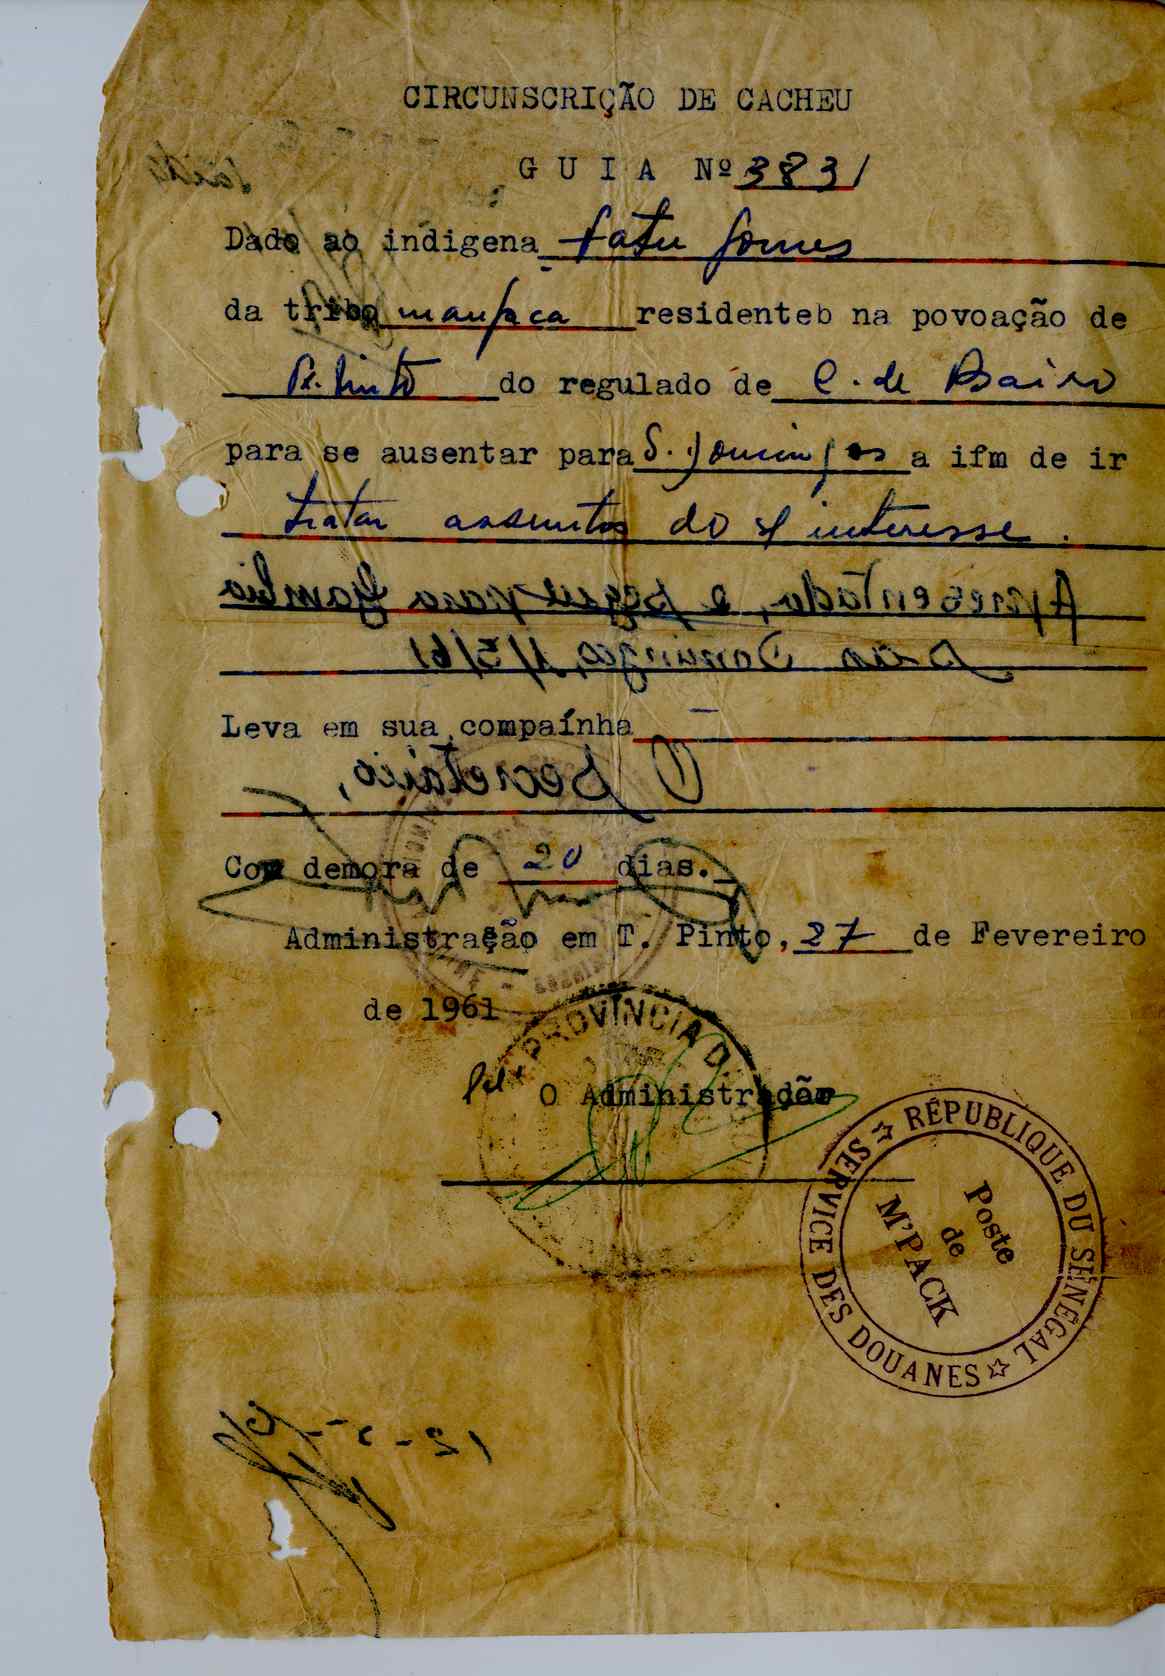 CIRCUNSCRIÇÃO DE CACHEU
G U I A Nº 3831
Dado ao indigena Fatu Gomes
da tribo residenteb na povoação de
do regulado de C. de Bairo
para se ausentar para S. Domingos a ifm de ir
tratar assuntos do s/ interesse.
Apresentada, e segue para Gambia
São Domingos, 1/3/61
Leva em sua compaínha —
O Secretário,
Com demora de 20 dias.
Administração em T. Pinto, 27 de Fevereiro
de 1961
PROVÍNCIA D
O Administrador
RÉPUBLIQUE DU SÉNÉGAL
SERVICE DES DOUANES
Poste
de
M'PACK